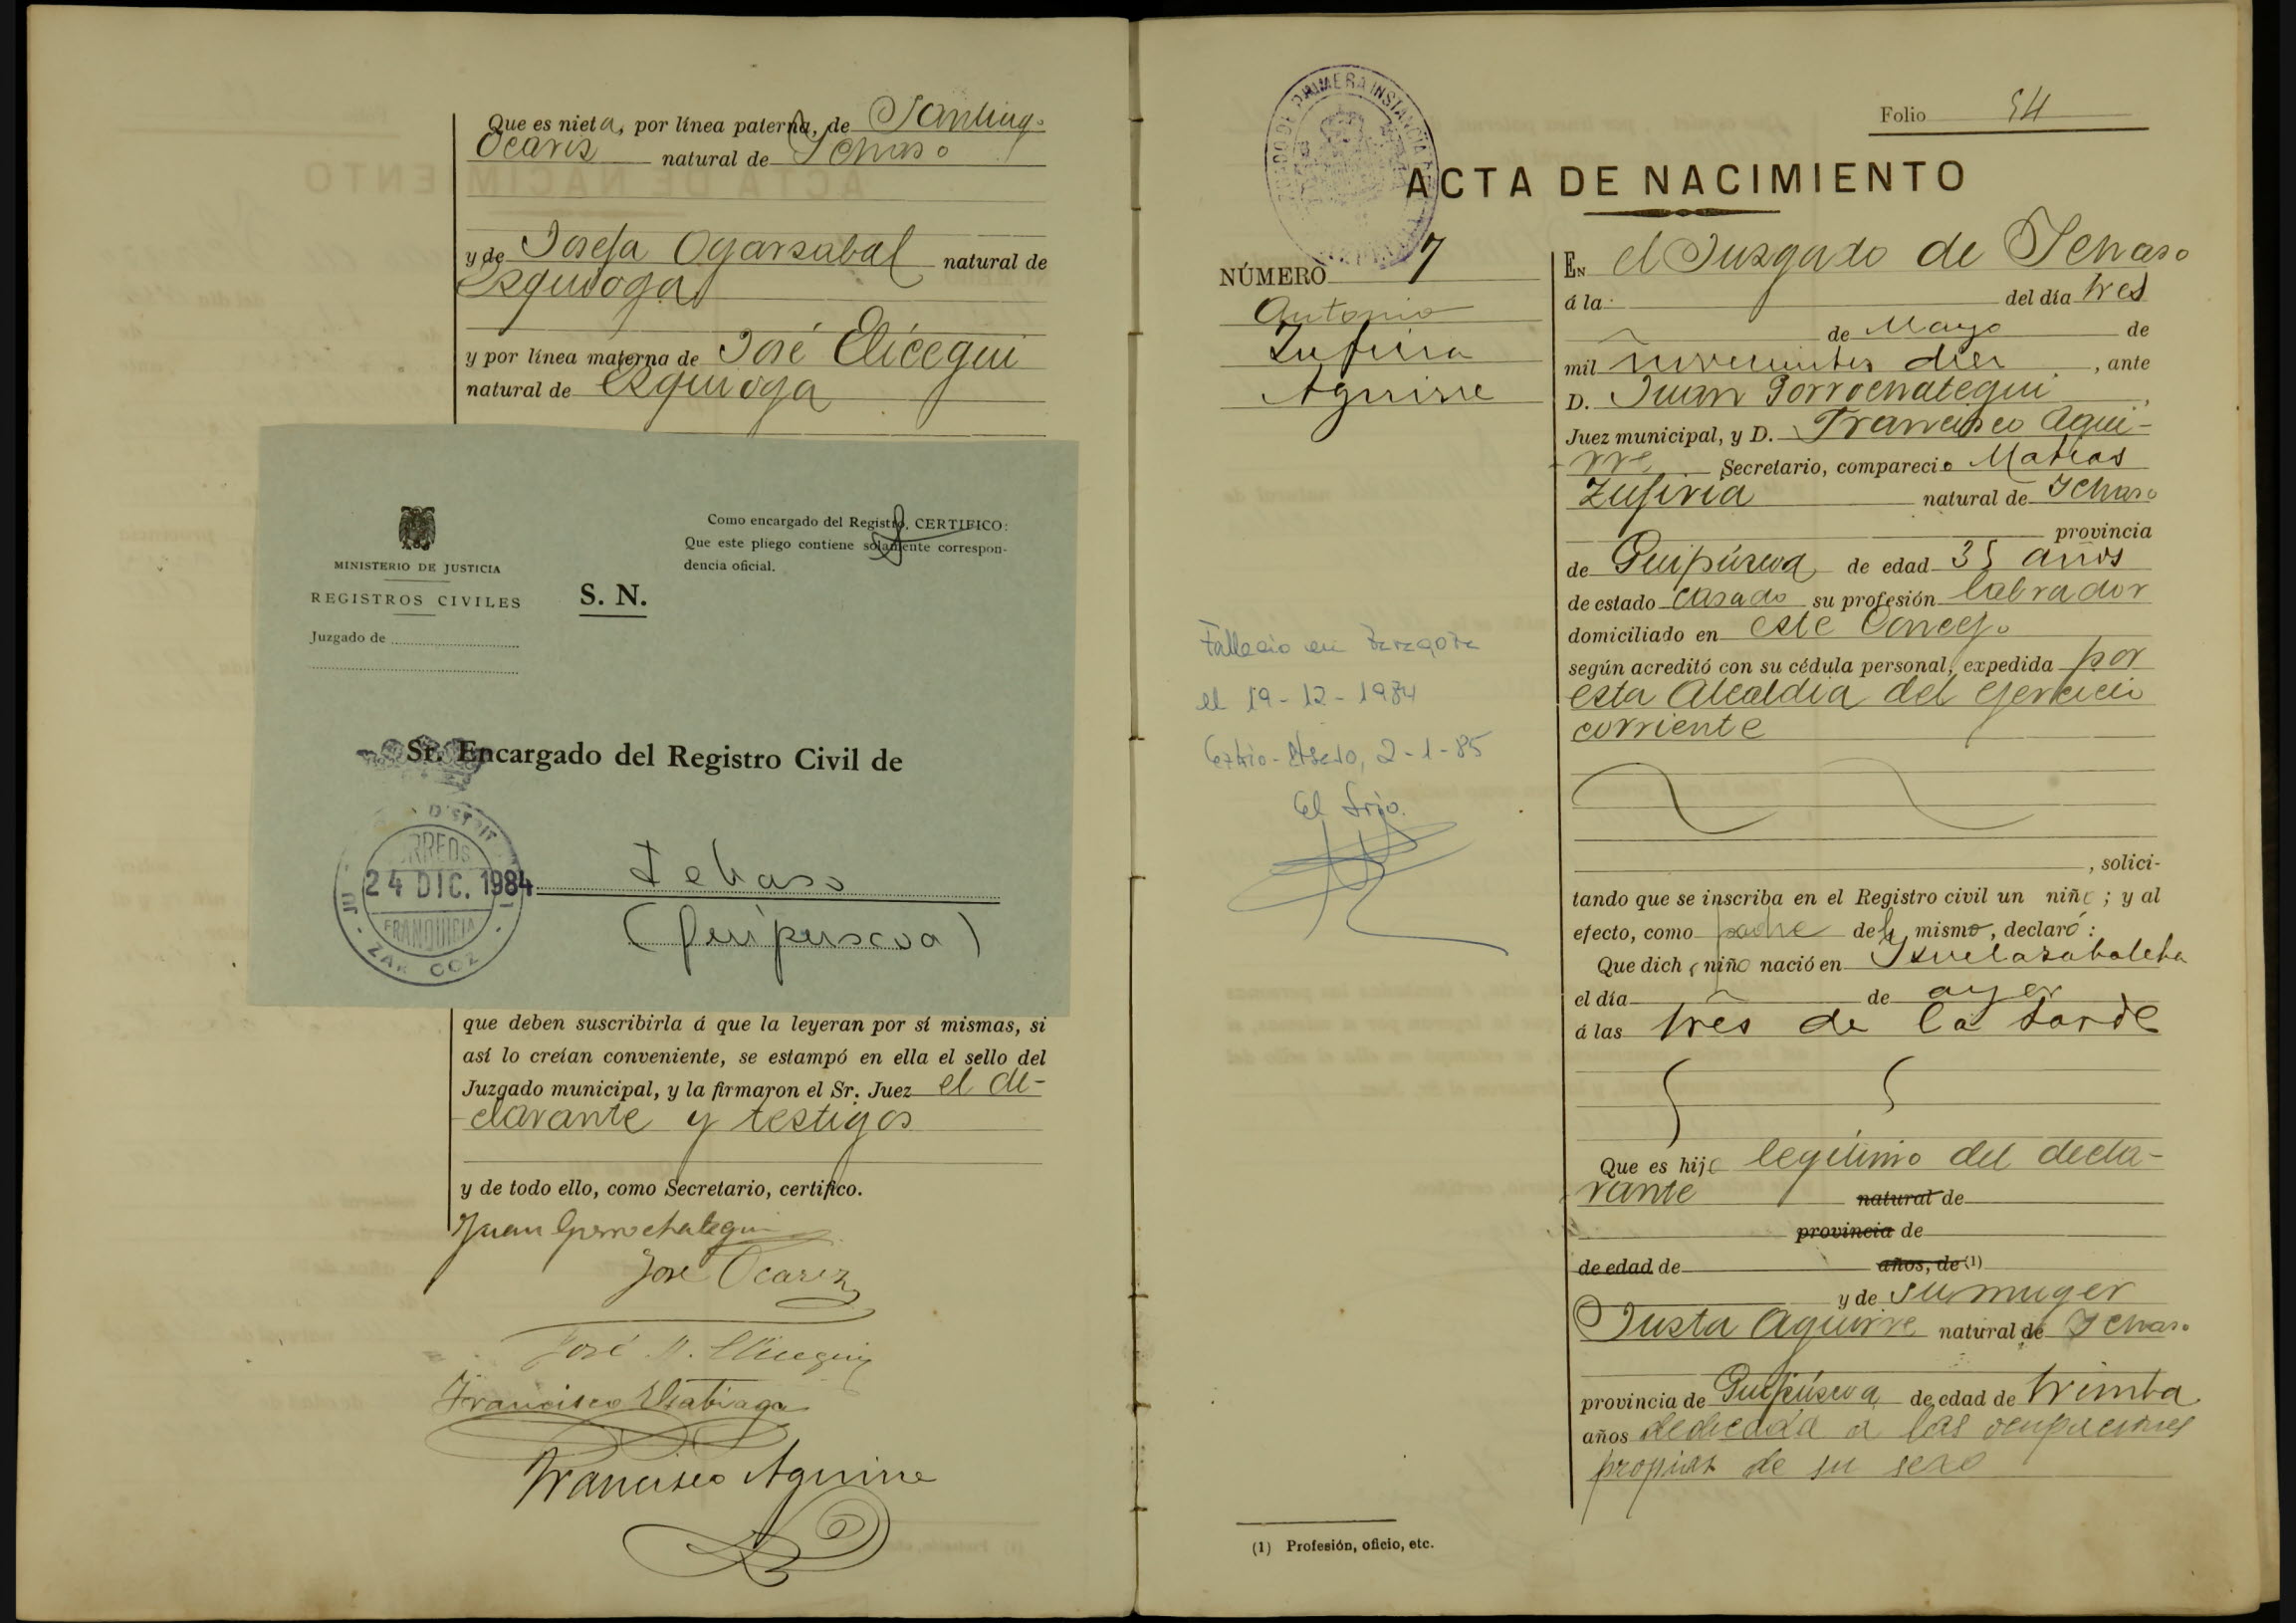 Que es nieta, por línea paterna, de Santiag.
Ocariz natural de Ichaso
y de Josefa Oyarzabal natural de
Ezquioga
y por línea materna de José Elícegui
natural de Ezquioga
MINISTERIO DE JUSTICIA
REGISTROS CIVILES
Juzgado de
S. N.
Como encargado del Registro, CERTIFICO:
Que este pliego contiene solamente correspon-
dencia oficial.
Sr. Encargado del Registro Civil de
CORREOS
24 DIC. 1984
FRANQUICIA
Ichaso
(Guipuscoa)
que deben suscribirla á que la leyeran por sí mismas, si
así lo creían conveniente, se estampó en ella el sello del
Juzgado municipal, y la firmaron el Sr. Juez el de-
clarante y testigos
y de todo ello, como Secretario, certifico.
Juan Gorrochategui
José Ocariz
José M. Elicegui
Francisco Usabiaga
Francisco Aguirre
Folio 54
JUZGADO DE PRIMERA INSTANCIA
ACTA DE NACIMIENTO
NÚMERO 7
Antonio
Zufiria
Aguirre
Falleció en Zaragoza
el 19-12-1984
Ezkio-Itsaso, 2-1-85
El Srio.
EN el Juzgado de Ichaso
á la del día tres
de Mayo de
mil novecientos diez, ante
D. Juan Gorrochategui,
Juez municipal, y D. Francisco Agui-
rre Secretario, compareció Matias
Zufiria natural de Ichaso
provincia
de Guipúzcoa de edad 35 años
de estado casado su profesión labrador
domiciliado en este Concejo
según acreditó con su cédula personal, expedida por
esta Alcaldia del ejercicio
corriente
, solici-
tando que se inscriba en el Registro civil un niño; y al
efecto, como padre del mismo, declaró:
Que dicho niño nació en
el día de ayer
á las tres de la tarde
Que es hijo legitimo del decla-
rante natural de
provincia de
de edad de años, de (1)
y de su muger
Justa Aguirre natural de Ichaso
provincia de Guipúzcoa de edad de treinta
años dedicada a las ocupaciones
propias de su sexo
(1) Profesión, oficio, etc.